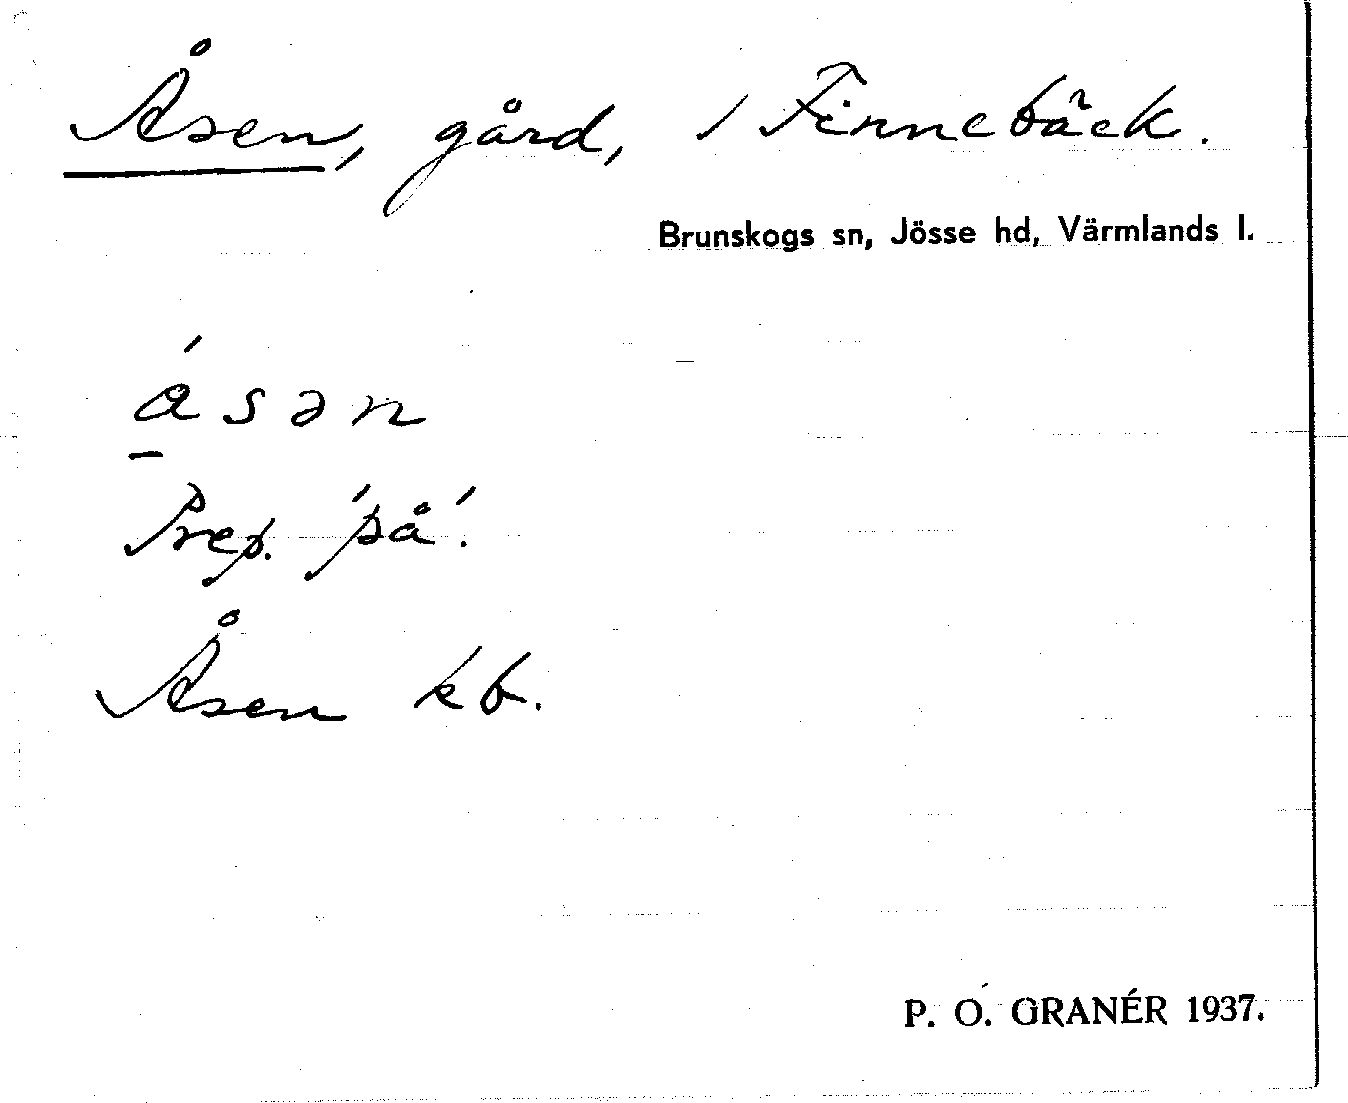 Åsen, gård, / Finnebäck.
Brunskogs sn, Jösse hd, Värmlands l.
åsən
Prep. 'på'.
Åsen kb.
P. O. GRANÉR 1937.